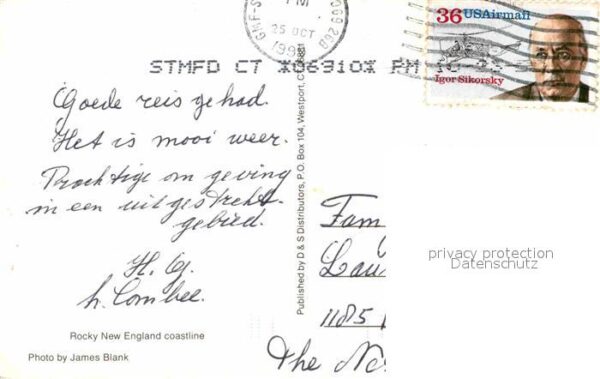 PM
25 OCT
36 USAirmail
Igor Sikorsky
STMFD CT *06910* PM
Goede reis gehad.
Het is mooi weer.
Prachtige om geving
in een uitgestrekt
gebied.
H. G.
h. Combee.
Rocky New England coastline
Photo by James Blank
Published by D & S Distributors, P.O. Box 104, Westport, CT
Fam
1185
The
privacy protection
Datenschutz